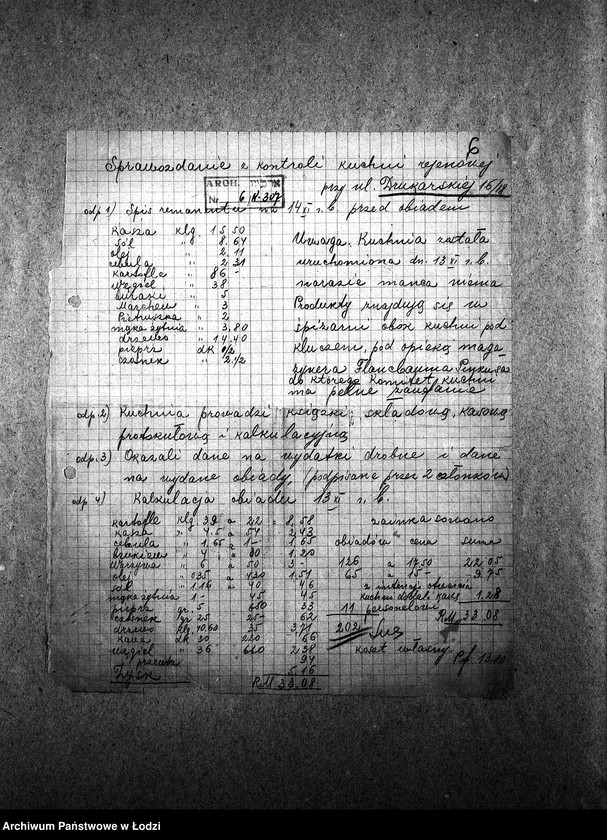 6
Sprawozdanie z kontroli kuchni rejonowej
przy ul. Drukarskiej 16/18
ARCH.
Nr. 6 N-307
odp 1) Spis remanentu na 14 XI r.b. przed obiadem
kasza klg. 15.50
sól " 8.64
olej " 2.11
cebula " 2.31
kartofle " 86 -
węgiel " 38
buraki " 5
Marchew " 3
Pietruszka " 2
mąka żytnia " 3.80
drzewo " 14.40
pieprz dk 0/2
czosnek " 2 1/2
Uwaga. Kuchnia została
uruchomiona dn. 13 XI r.b.
narazie manca niema
Produkty znajdują się w
spiżarni obok kuchni pod
kluczem, pod opieką maga-
zyniera Flancbauma Pinkusa
do którego Komitet kuchni
ma pełne zaufanie
odp 2) Kuchnia prowadzi książki: składową, kasową
protokułową i kalkulacyjną
odp. 3) Okazali dane na wydatki drobne i dane
na wydane obiady, (podpisane przez 2 członków)
odp 4) Kalkulacja obiadu 13 XI r. b.
kartofle klg 39 a 22 = 8.58
kasza " 4.5 a 54 2.43
cebula " 1.65 a 1 - 1.65
brukiew " 4 a 30 1.20
warzywa " 6 a 50 3 -
olej " 035 a 430 1.51
sól " 1.16 a 40 46
mąka żytnia 1 - 45 45
pieprz gr. 5 650 33
czosnek gr 25 25 - 62
drzewo klg. 10.60 35 3.71
kawa dk 30 220 66
węgiel " 36 660 2.38
94
Zysk 5.16
RM 33.08
zainkasowano
obiadów cena suma
126 a 17.50 22.05
65 a 15 - 9.75
kuchni dodali kawę 1.28
11 personelowe
RM 33.08
202
koszt własny
Pf. 13.80
Archiwum Państwowe w Łodzi